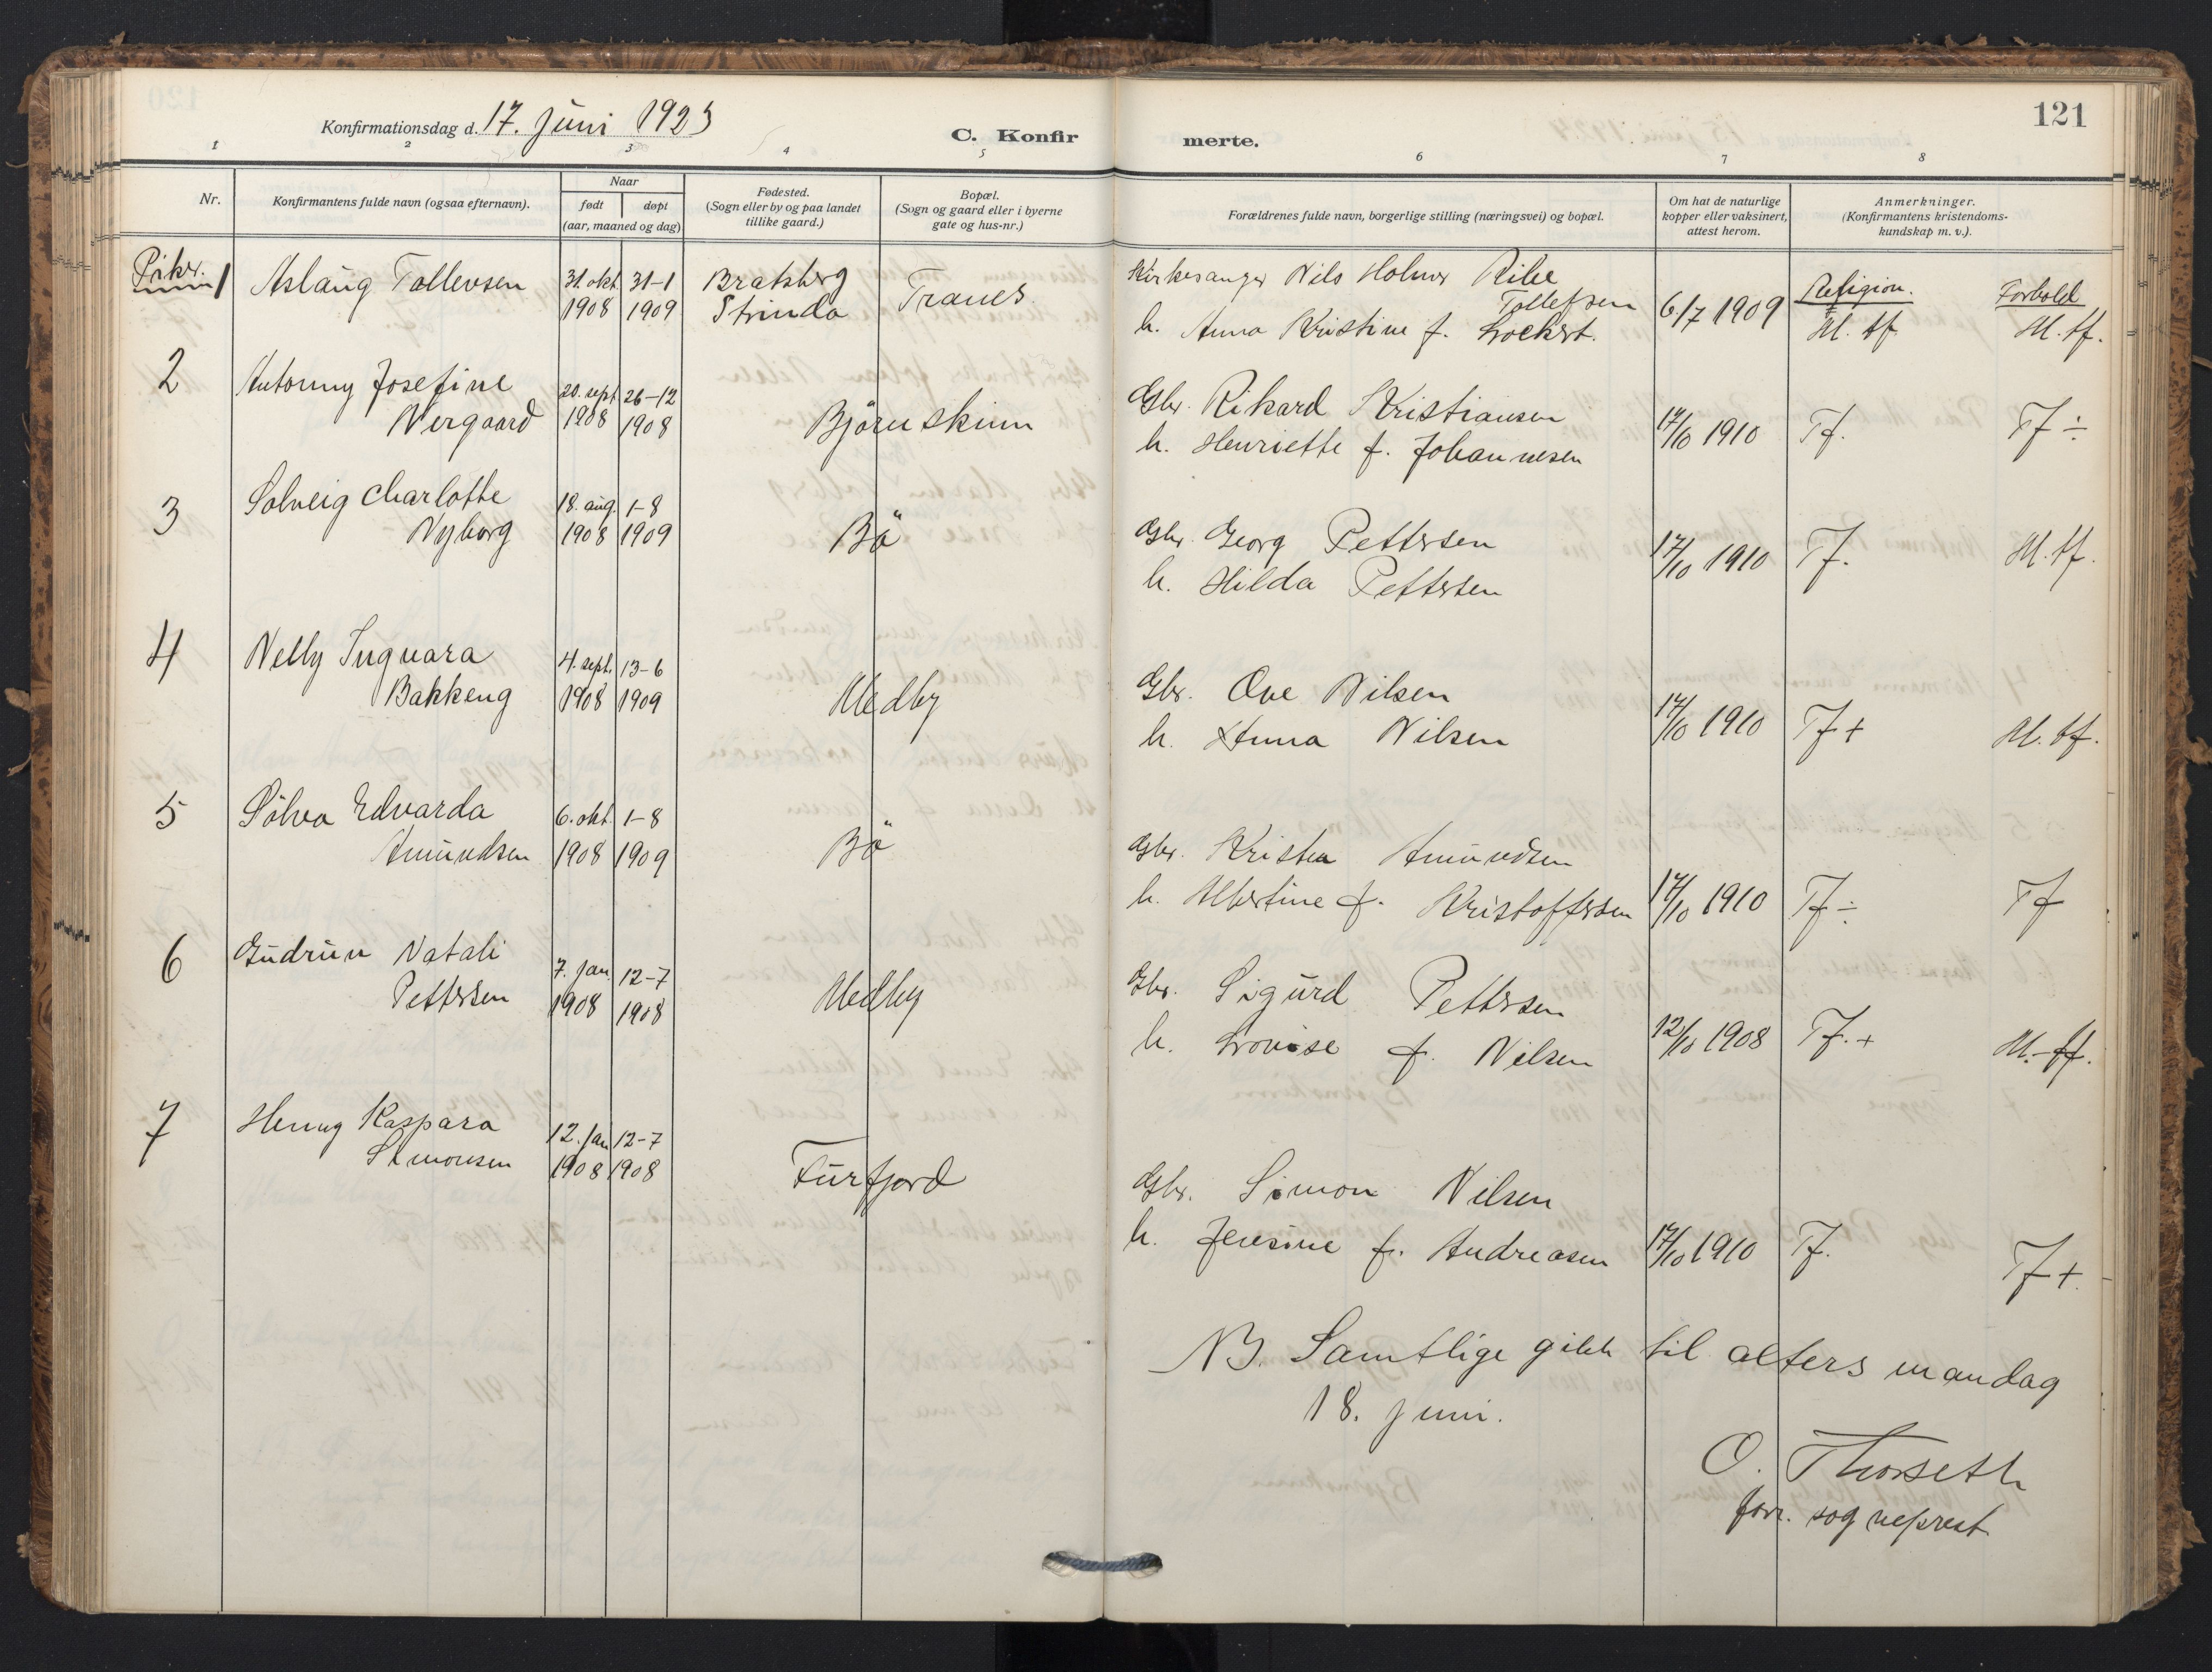 121
Konfirmationsdag d. 17. juni 1923
C. Konfir
merte.
1 2 3 4 5 6 7 8
Nr.
Konfirmantens fulde navn (ogsaa efternavn).
Naar
født døpt
(aar, maaned og dag)
Fødested.
(Sogn eller by og paa landet
tillike gaard.)
Bopæl.
(Sogn og gaard eller i byerne
gate og hus-nr.)
Forældrenes fulde navn, borgerlige stilling (næringsvei) og bopæl.
Om hat de naturlige
kopper eller vaksinert,
attest herom.
Anmerkninger.
(Konfirmantens kristendoms-
kundskap m. v.).
Piker.
Religion. Forhold
1 Aslaug Tollevsen 31. okt. 31-1 Bratsberg Tranes Kirkesanger Nils Holmer
1908 1909 Strinda Tollefsen 6/7 1909 M. tf. M. tf.
h. Anna Kristine f. Lockert.
2 Antonny Josefine 20. sept. 26-12 Gbr. Rikard Kristiansen
Nergaard 1908 1908 Björnskinn 17/10 1910 Tf. Tf ÷
h. Henriette f. Johannesen
3 Solveig Charlotte 18. aug. 1-8 Gbr. Georg Pettersen
Nyborg 1908 1909 Bö 17/10 1910 Tf. M. tf.
h. Hilda Pettersen
4 Nelly Ingvara 4. sept. 13-6 Gbr. Ove Nilsen
Bakkeng 1908 1909 Medby
h. Anna Nilsen 17/10 1910 Tf + M. tf.
5 Sölva Edvarda 6. okt. 1-8 Gbr. Kristen Amundsen
Amundsen 1908 1909 Bö
h. Albertine f. Kristoffersen 17/10 1910 Tf ÷ Tf
6 Gudrun Natali 7. jan. 12-7 Gbr. Sigurd Pettersen
Pettersen 1908 1908 Medby
h. Lovise f. Nilsen 12/10 1908 Tf. + M. tf.
7 Henny Kaspara 12. jan 12-7
Simonsen 1908 1908 Furfjord Gbr. Simon Nilsen
h. Jensine f. Andreasen 17/10 1910 Tf. Tf +
NB. Samtlige gikk til alters mandag
18. juni.
O. Thorseth
forr. sogneprest